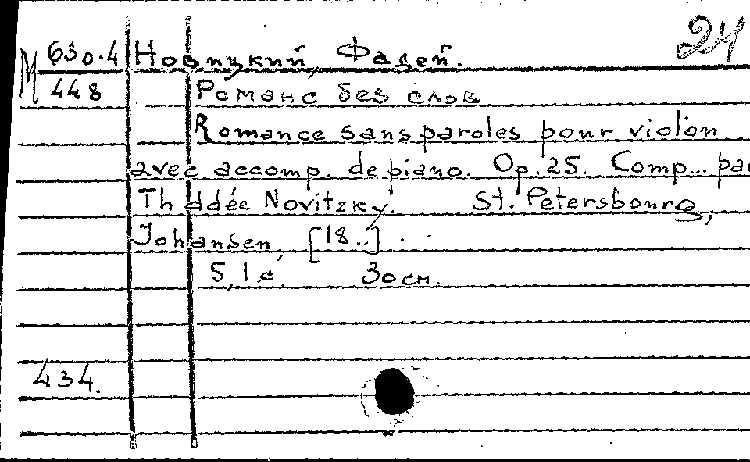 24
М 630.4 Новицкий, Фадей.
448 Романс без слов
Romance sans paroles pour violon
avec accomp. de piano. Op. 25. Comp... par
Thaddée Novitzky. St. Petersbourg,
Johansen, [18..]
5, 1 с. 30 см.
434.